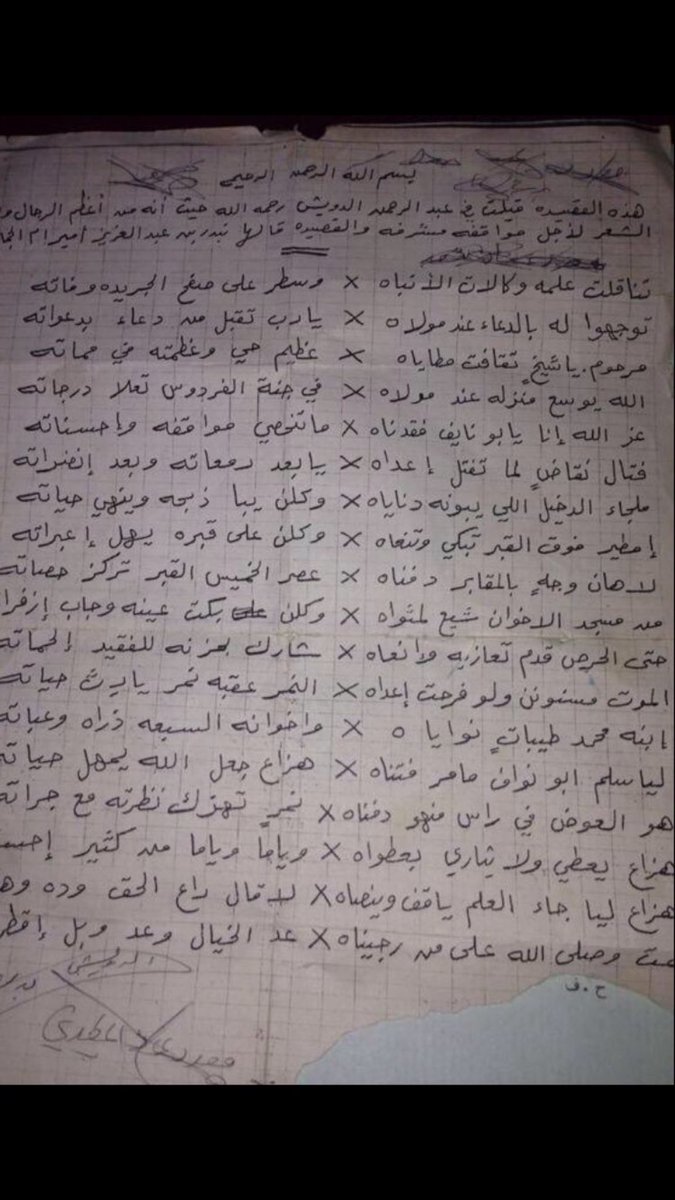 بسم الله الرحمن الرحيم
هذه القصيده قيلت في عبدالرحمن الدويش رحمه الله حيث أنه من أعظم الرجال
الشعر لأجل مواقفه مشرفه والقصيده قالها بندر بن عبدالعزيز
تناقلت علمه وكالات الأنباه × وسطر على صفح الجريده وفاته
توجهوا له بالدعاء عند مولاه × يارب تقبل من دعاء بدعواته
مرحوم. ياشيخٍ تقافت مطاياه × عظيم حي وعظمته في مماته
الله يوسع منزله عند مولاه × في جنة الفردوس تعلا درجاته
عز الله إنا يابو نايف فقدناه × ماتنحصي مواقفه وإحسناته
فتال نقاضٍ لما تفتل إعداه × يابعد رمعاته وبعد إنضراته
ملجاء الدخيل اللي يبونه دناياه × وكلن يبا ذبحه وينهي حياته
إمطير فوق القبر تبكي وتنعاه × وكلن على قبره يهل إعبراته
لاهان وجهٍ بالمقابر دفناه × عصر الخميس القبر تركز حصاته
من مسجد الاخوان شيع لمثواه × وكلن بكت عينه وجاب إزفر
حتى الحرص قدم تعازيه وانعاه × شارك بحزنه للفقيد
الموت مسنونن ولو فرحت إعداه × النمر عقبه نمر يايرث حياته
إبنه محمد طيباتٍ نوايا ه × واخوانه السبعه ذراه وعباته
لياسلم ابو نواف مامر فتناه × هزاع جعل الله يمهل حياته
هو العوض في راس منهو دفناه × نمرٍ تهزك نظرته مع جراته
هزاع يعطي ولا يثاري بعطواه × وياما وياما من كثير
هزاع ليا جاء العلم ياقف وينصاه × لاقال راع الحق وده
وصلى الله على من رجيناه × عد الخيال وعد وبل إقطر
ح.ف
الدويش